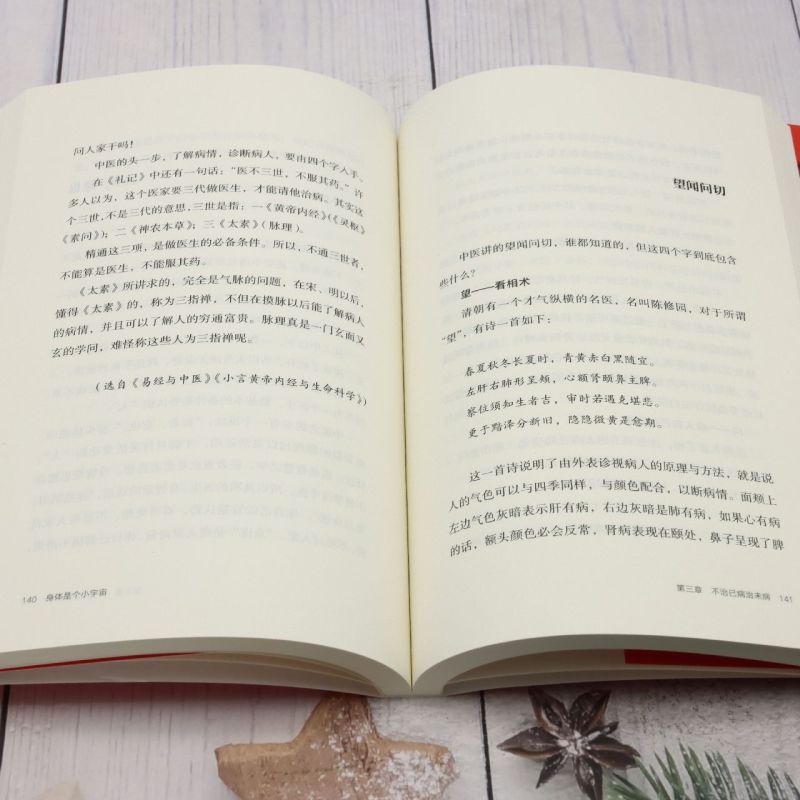 问人家干吗！
中医的头一步，了解病情，诊断病人，要由四个字入手。
在《礼记》中还有一句话：“医不三世，不服其药。”许
多人以为，这个医家要三代做医生，才能请他治病。其实这
个三世，不是三代的意思，三世是指：一《黄帝内经》（《灵枢》
《素问》）；二《神农本草》；三《太素》（脉理）。
精通这三项，是做医生的必备条件。所以，不通三世者，
不能算是医生，不能服其药。
《太素》所讲求的，完全是气脉的问题，在宋、明以后，
懂得《太素》的，称为三指禅，不但在摸脉以后能了解病人
的病情，并且可以了解人的穷通富贵。脉理真是一门玄而又
玄的学问，难怪称这些人为三指禅呢。
（选自《易经与中医》《小言黄帝内经与生命科学》）
140 身体是个小宇宙
望闻问切
中医讲的望闻问切，谁都知道的，但这四个字到底包含
些什么？
望——看相术
清朝有一个才气纵横的名医，名叫陈修园，对于所谓
“望”，有诗一首如下：
春夏秋冬长夏时，青黄赤白黑随宜。
左肝右肺形呈颊，心额肾颐鼻主脾。
察位须知生者吉，审时若遇克堪悲。
更于黯泽分新旧，隐隐微黄是愈期。
这一首诗说明了由外表诊视病人的原理与方法，就是说
人的气色可以与四季同样，与颜色配合，以断病情。面颊上
左边气色灰暗表示肝有病，右边灰暗是肺有病，如果心有病
的话，额头颜色必会反常，肾病表现在颐处，鼻子呈现了脾
第三章 不治已病治未病 141